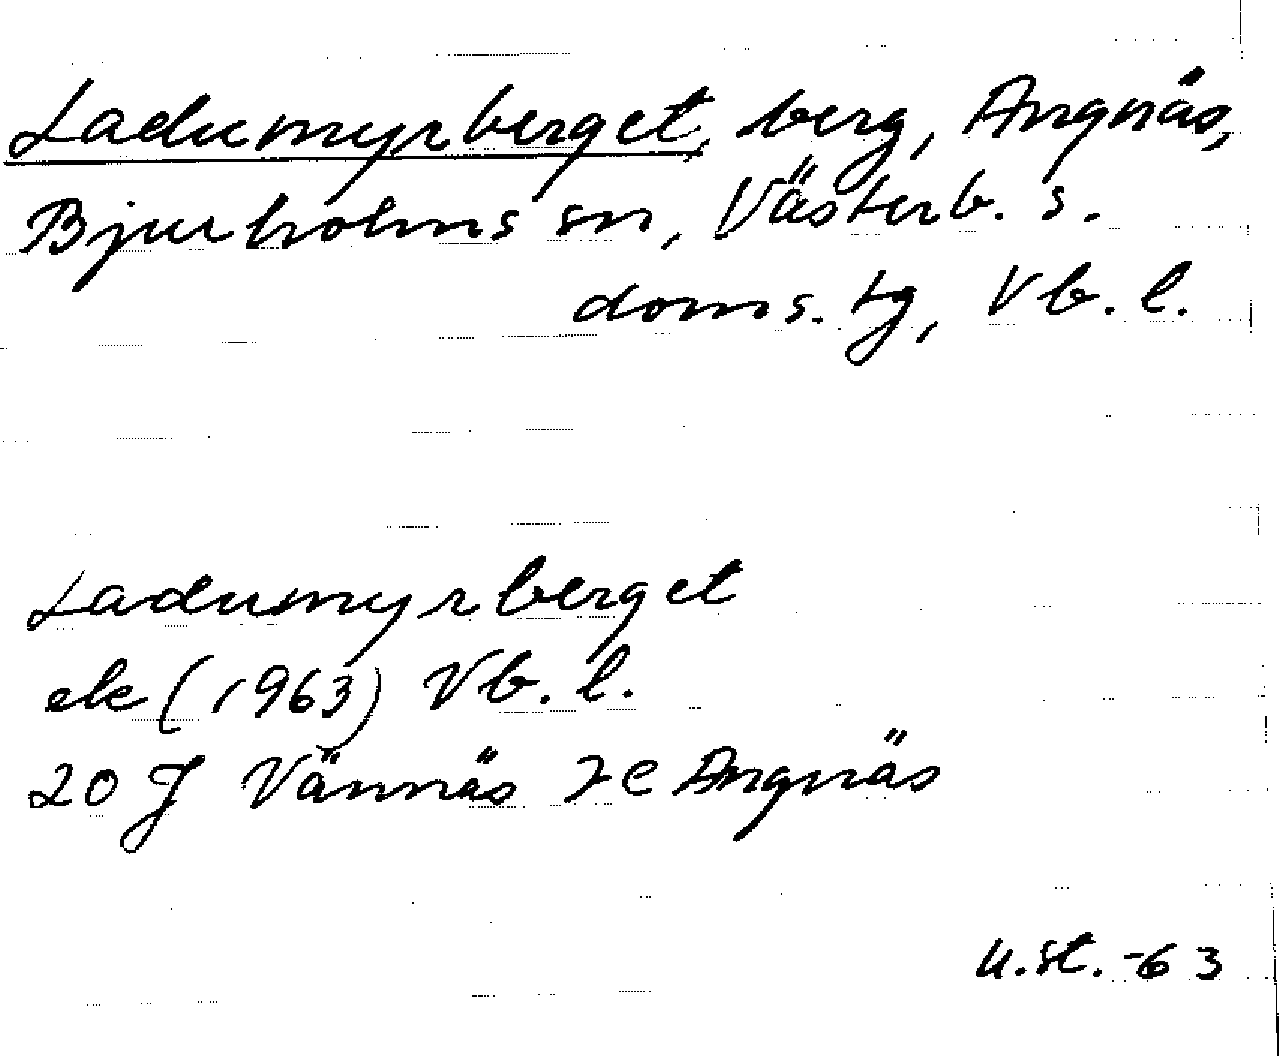 Ladumyrberget, berg, Angnäs,
Bjurholms sn, Västerb. s.
doms. tg, Vb. l.
Ladumyrberget
ek (1963) Vb. l.
20 J Vännäs 7 e Angnäs
u.st. -63